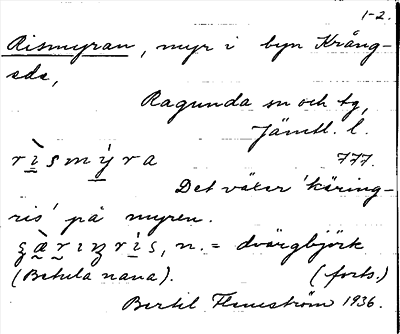 1-2.
Rismyran, myr i byn Krång-
ede,
Ragunda sn och tg,
Jämtl. l.
rìsmýra 777.
Det växer 'käring-
ris' på myren.
(Betula nana). (forts.)
Bertil Flemström 1936.